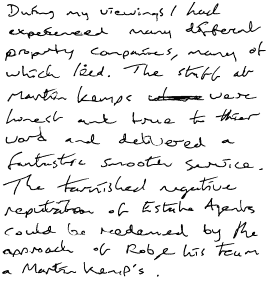 During my viewings I had
experienced many different
property companies, many of
which lied. The staff at
Martin Kemps were
honest and true to their
word and delivered a
fantastic smooter service.
The tarnished negative
reputation of Estate Agents
could be redeemed by the
approach of Rob & his team
a Martin Kemp's.